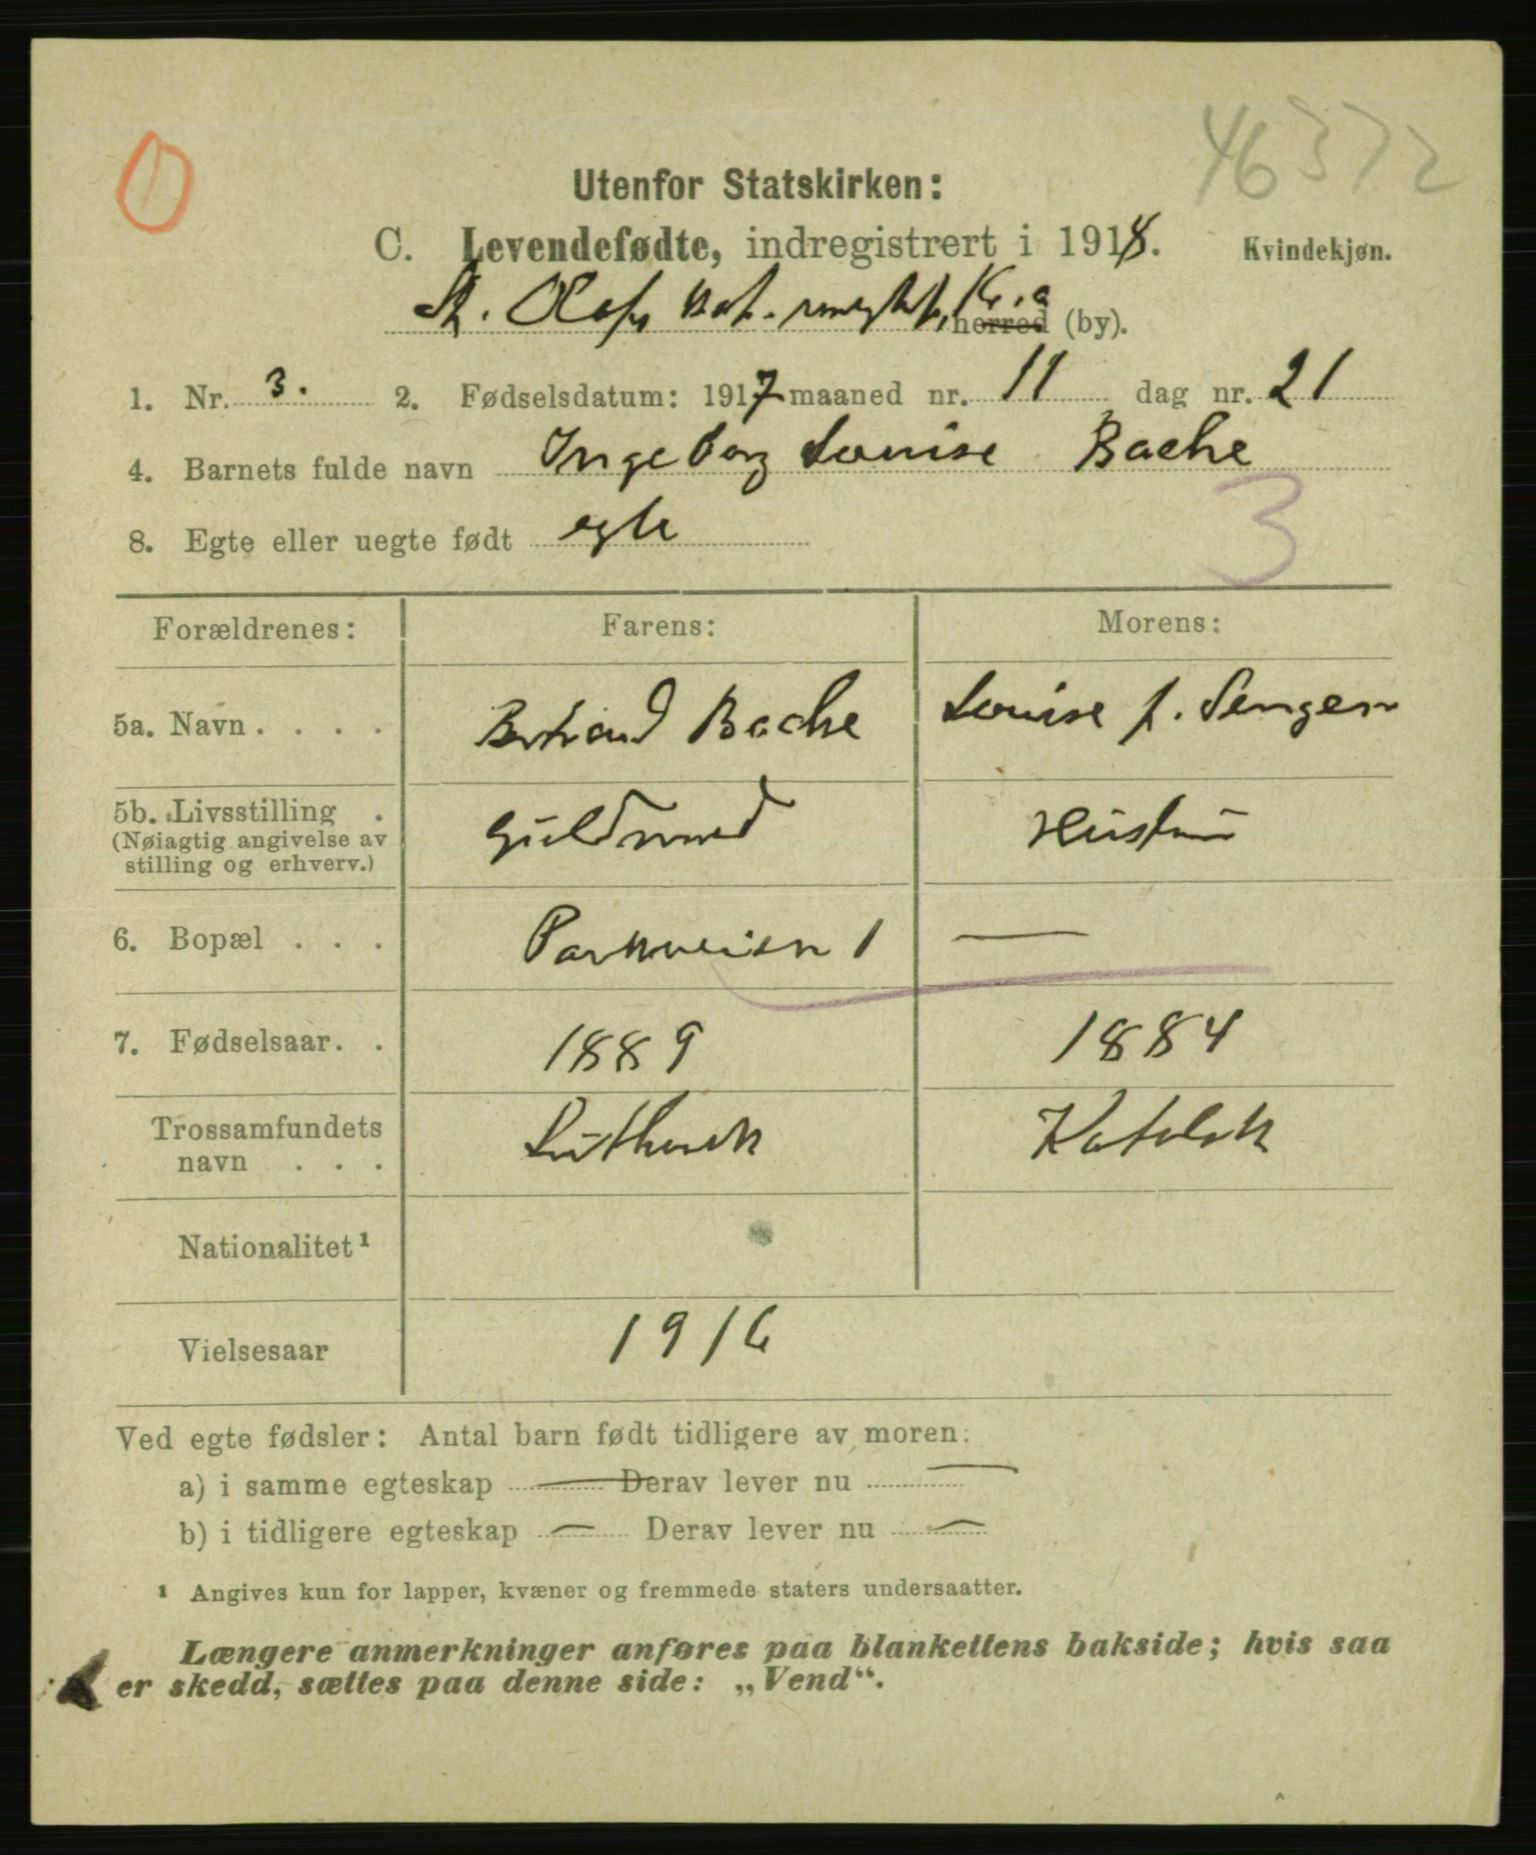 46372
Utenfor Statskirken:
C. Levendefødte, indregistrert i 1918. Kvindekjøn.
St. Olafs kat. menighet, K.a herred (by).
1. Nr. 3. 2. Fødselsdatum: 1917 maaned nr. 11 dag nr. 21
4. Barnets fulde navn Ingeborg Louise Bache
3
8. Egte eller uegte født egte
Forældrenes: Farens: Morens:
5a. Navn . . . . Bertrand Bache Louise f. Sengen
5b. Livsstilling . Guldsmed Hustru
(Nøiagtig angivelse av
stilling og erhverv.)
6. Bopæl . . . Parkveien 1 —
7. Fødselsaar. . 1889 1884
Trossamfundets Luthersk Katolsk
navn . . .
Nationalitet¹
Vielsesaar 1916
Ved egte fødsler: Antal barn født tidligere av moren:
a) i samme egteskap — Derav lever nu —
b) i tidligere egteskap — Derav lever nu —
¹ Angives kun for lapper, kvæner og fremmede staters undersaatter.
Længere anmerkninger anføres paa blankettens bakside; hvis saa
er skedd, sættes paa denne side: „Vend“.